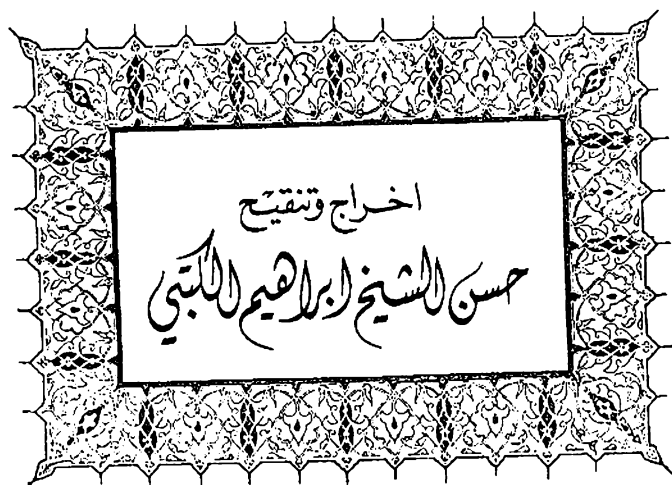 اخراج وتنقيح
حسن الشيخ ابراهيم الكتبي